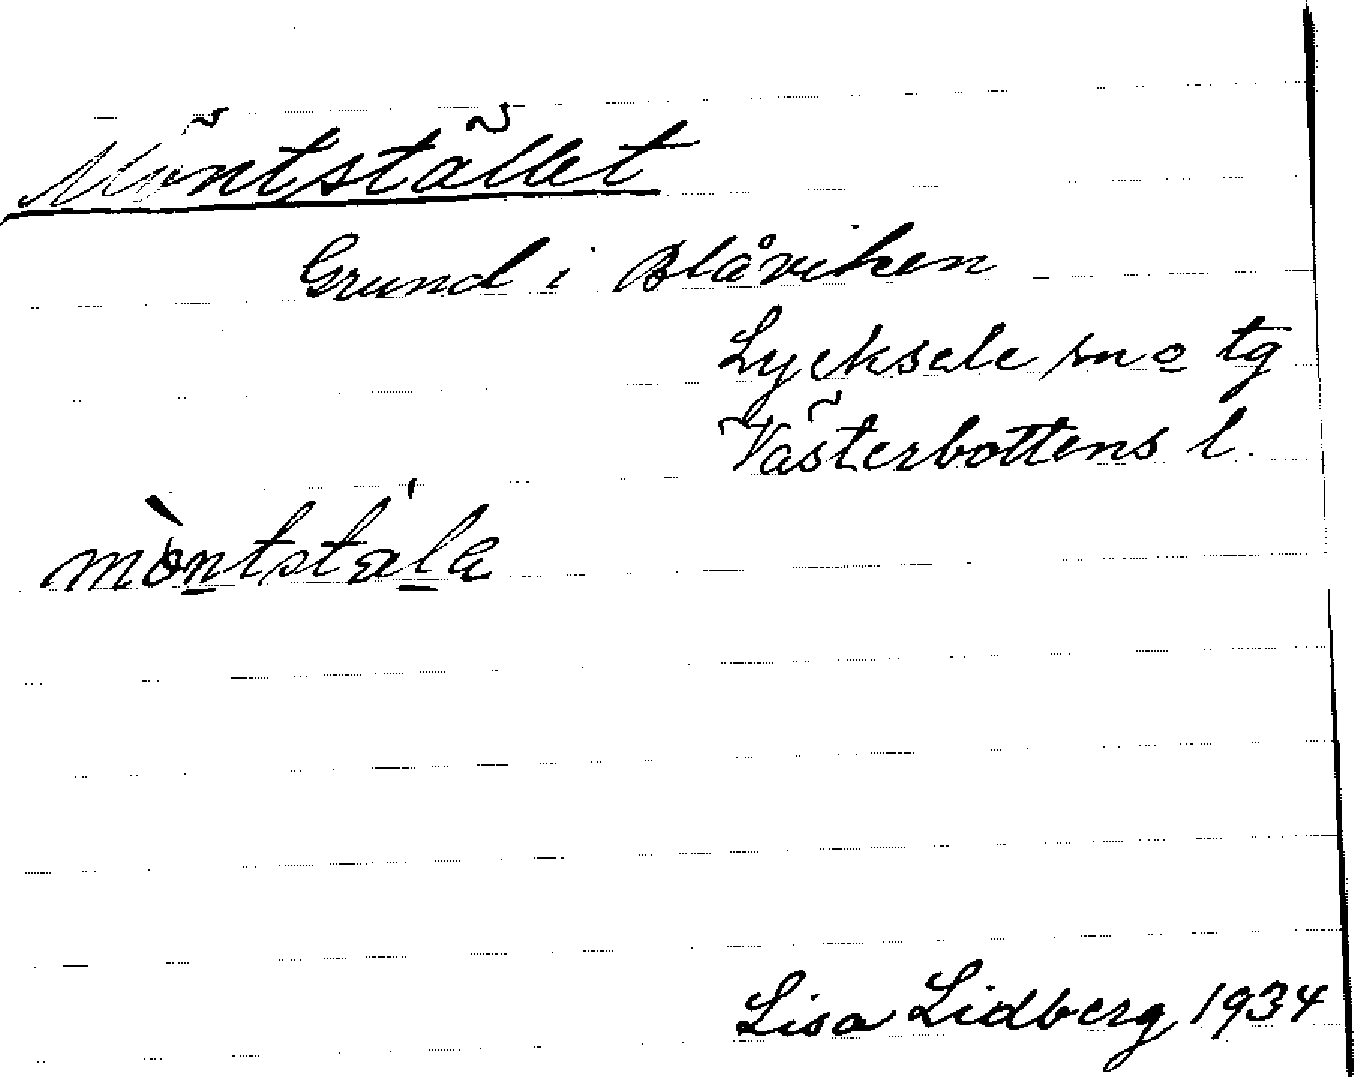 Möntstället
Grund i Blåviken
Lycksele sn o tg
Västerbottens l.
mòntstä́la
Lisa Lidberg 1934